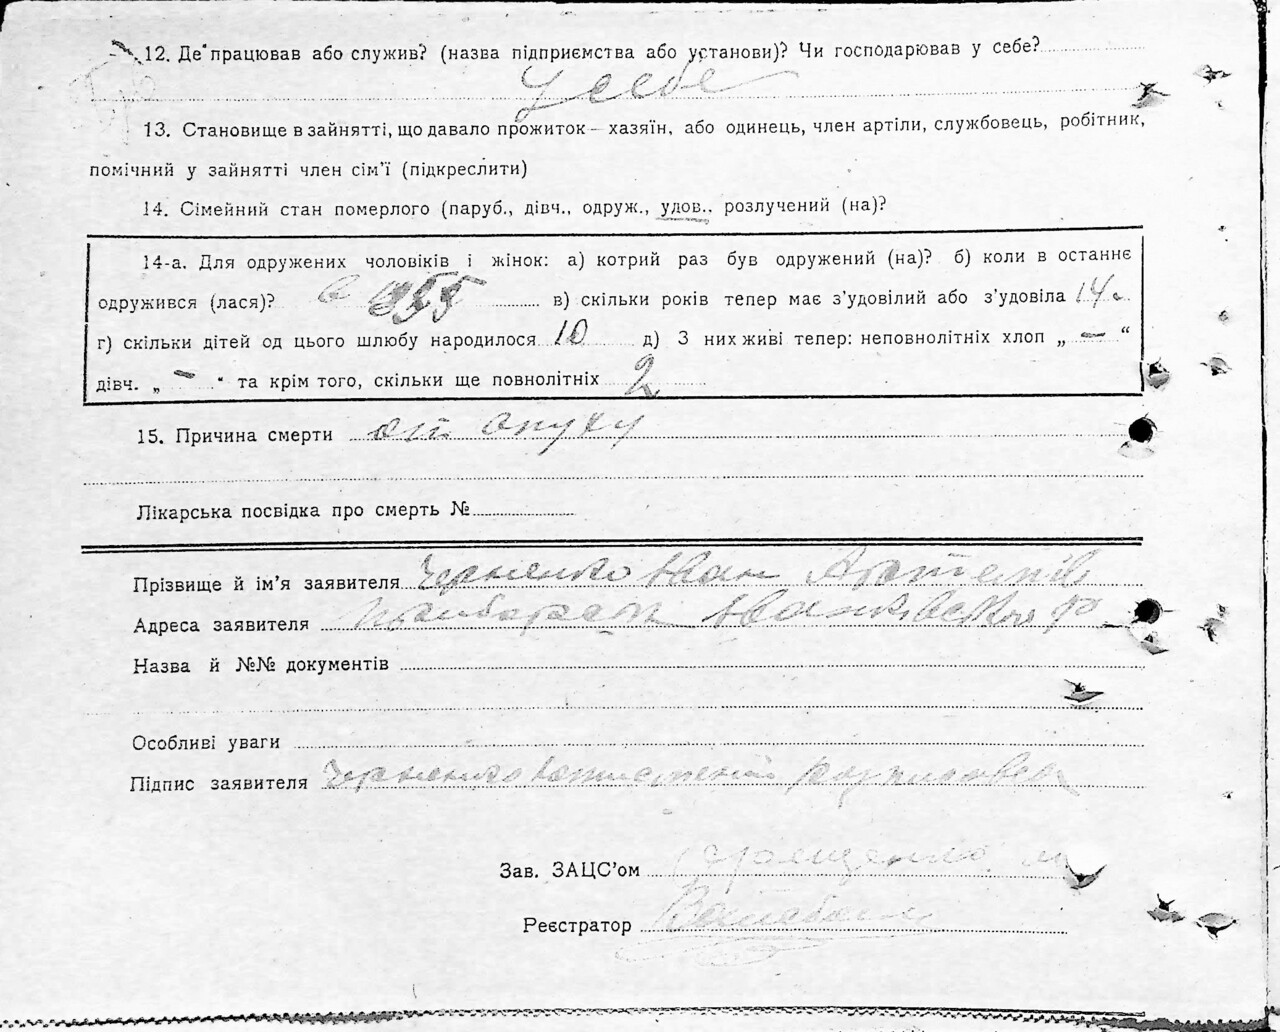 12. Де працював або служив? (назва підприємства або установи)? Чи господарював у себе?
у себе
13. Становище в зайнятті, що давало прожиток — хазяїн, або одинець, член артіли, службовець, робітник,
помічний у зайнятті член сім'ї (підкреслити)
14. Сімейний стан померлого (паруб., дівч., одруж., удов., розлучений (на)?
14-а. Для одружених чоловіків і жінок: а) котрий раз був одружений (на)? б) коли в останнє
одружився (лася)? в) скільки років тепер має з'удовілий або з'удовіла 14
г) скільки дітей од цього шлюбу народилося 10 д) З них живі тепер: неповнолітніх хлоп „ — “
дівч. „ — “ та крім того, скільки ще повнолітніх 2
15. Причина смерти от опуху
Лікарська посвідка про смерть №
Прізвище й ім'я заявителя Черненко Іван
Адреса заявителя
Назва й №№ документів
Особливі уваги
Підпис заявителя Черненко
Зав. ЗАЦС'ом
Реєстратор